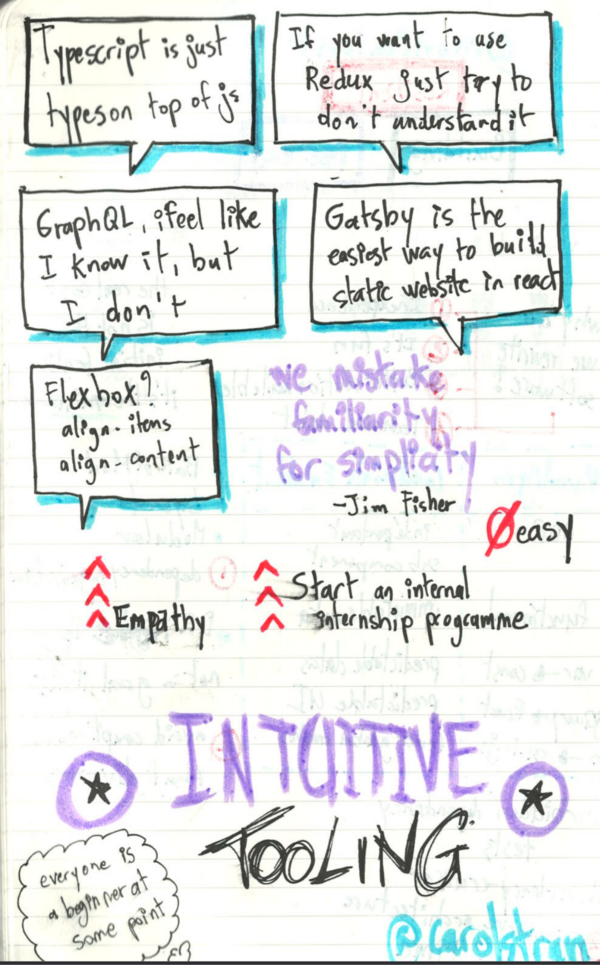 Typescript is just
types on top of js
If you want to use
Redux just try to
don't understand it
GraphQL, i feel like
I know it, but
I don't
Gatsby is the
easiest way to build
static website in react
Flexbox?
align-items
align-content
we mistake
familiarity
for simplicity
-Jim Fisher
easy
Empathy
Start an internal
internship programme
INTUITIVE
TOOLING
everyone is
a beginner at
some point
@carolstran